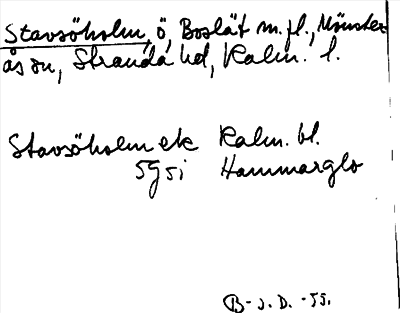 Stavsöholm, ö, Boslät m.fl., Mönster-
ås sn, Stranda hd, Kalm. l.
Stavsöholm ek Kalm. bl.
5g5i Hammarglo
B-J. D. -55.